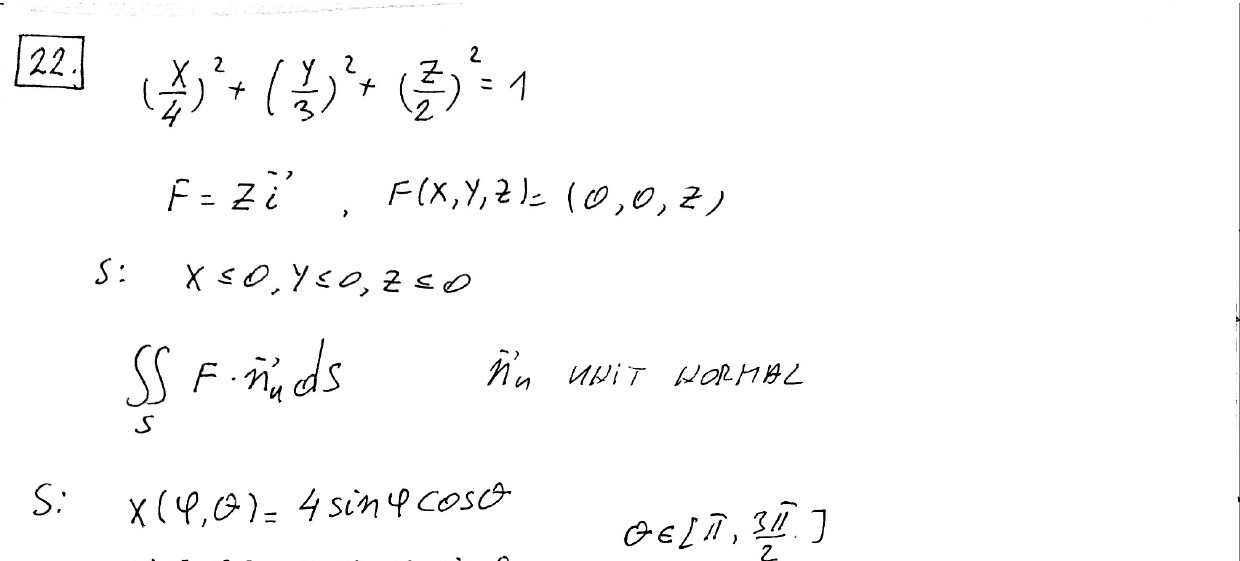 22. (x/4)² + (y/3)² + (z/2)² = 1
F = z i⃗ , F(x,y,z) = (0,0,z)
S: x ≤ 0, y ≤ 0, z ≤ 0
∬_S F · n⃗ᵤ ds n⃗ᵤ UNIT NORMAL
S: x(φ,θ) = 4 sin φ cos θ θ ∈ [π, 3π/2]